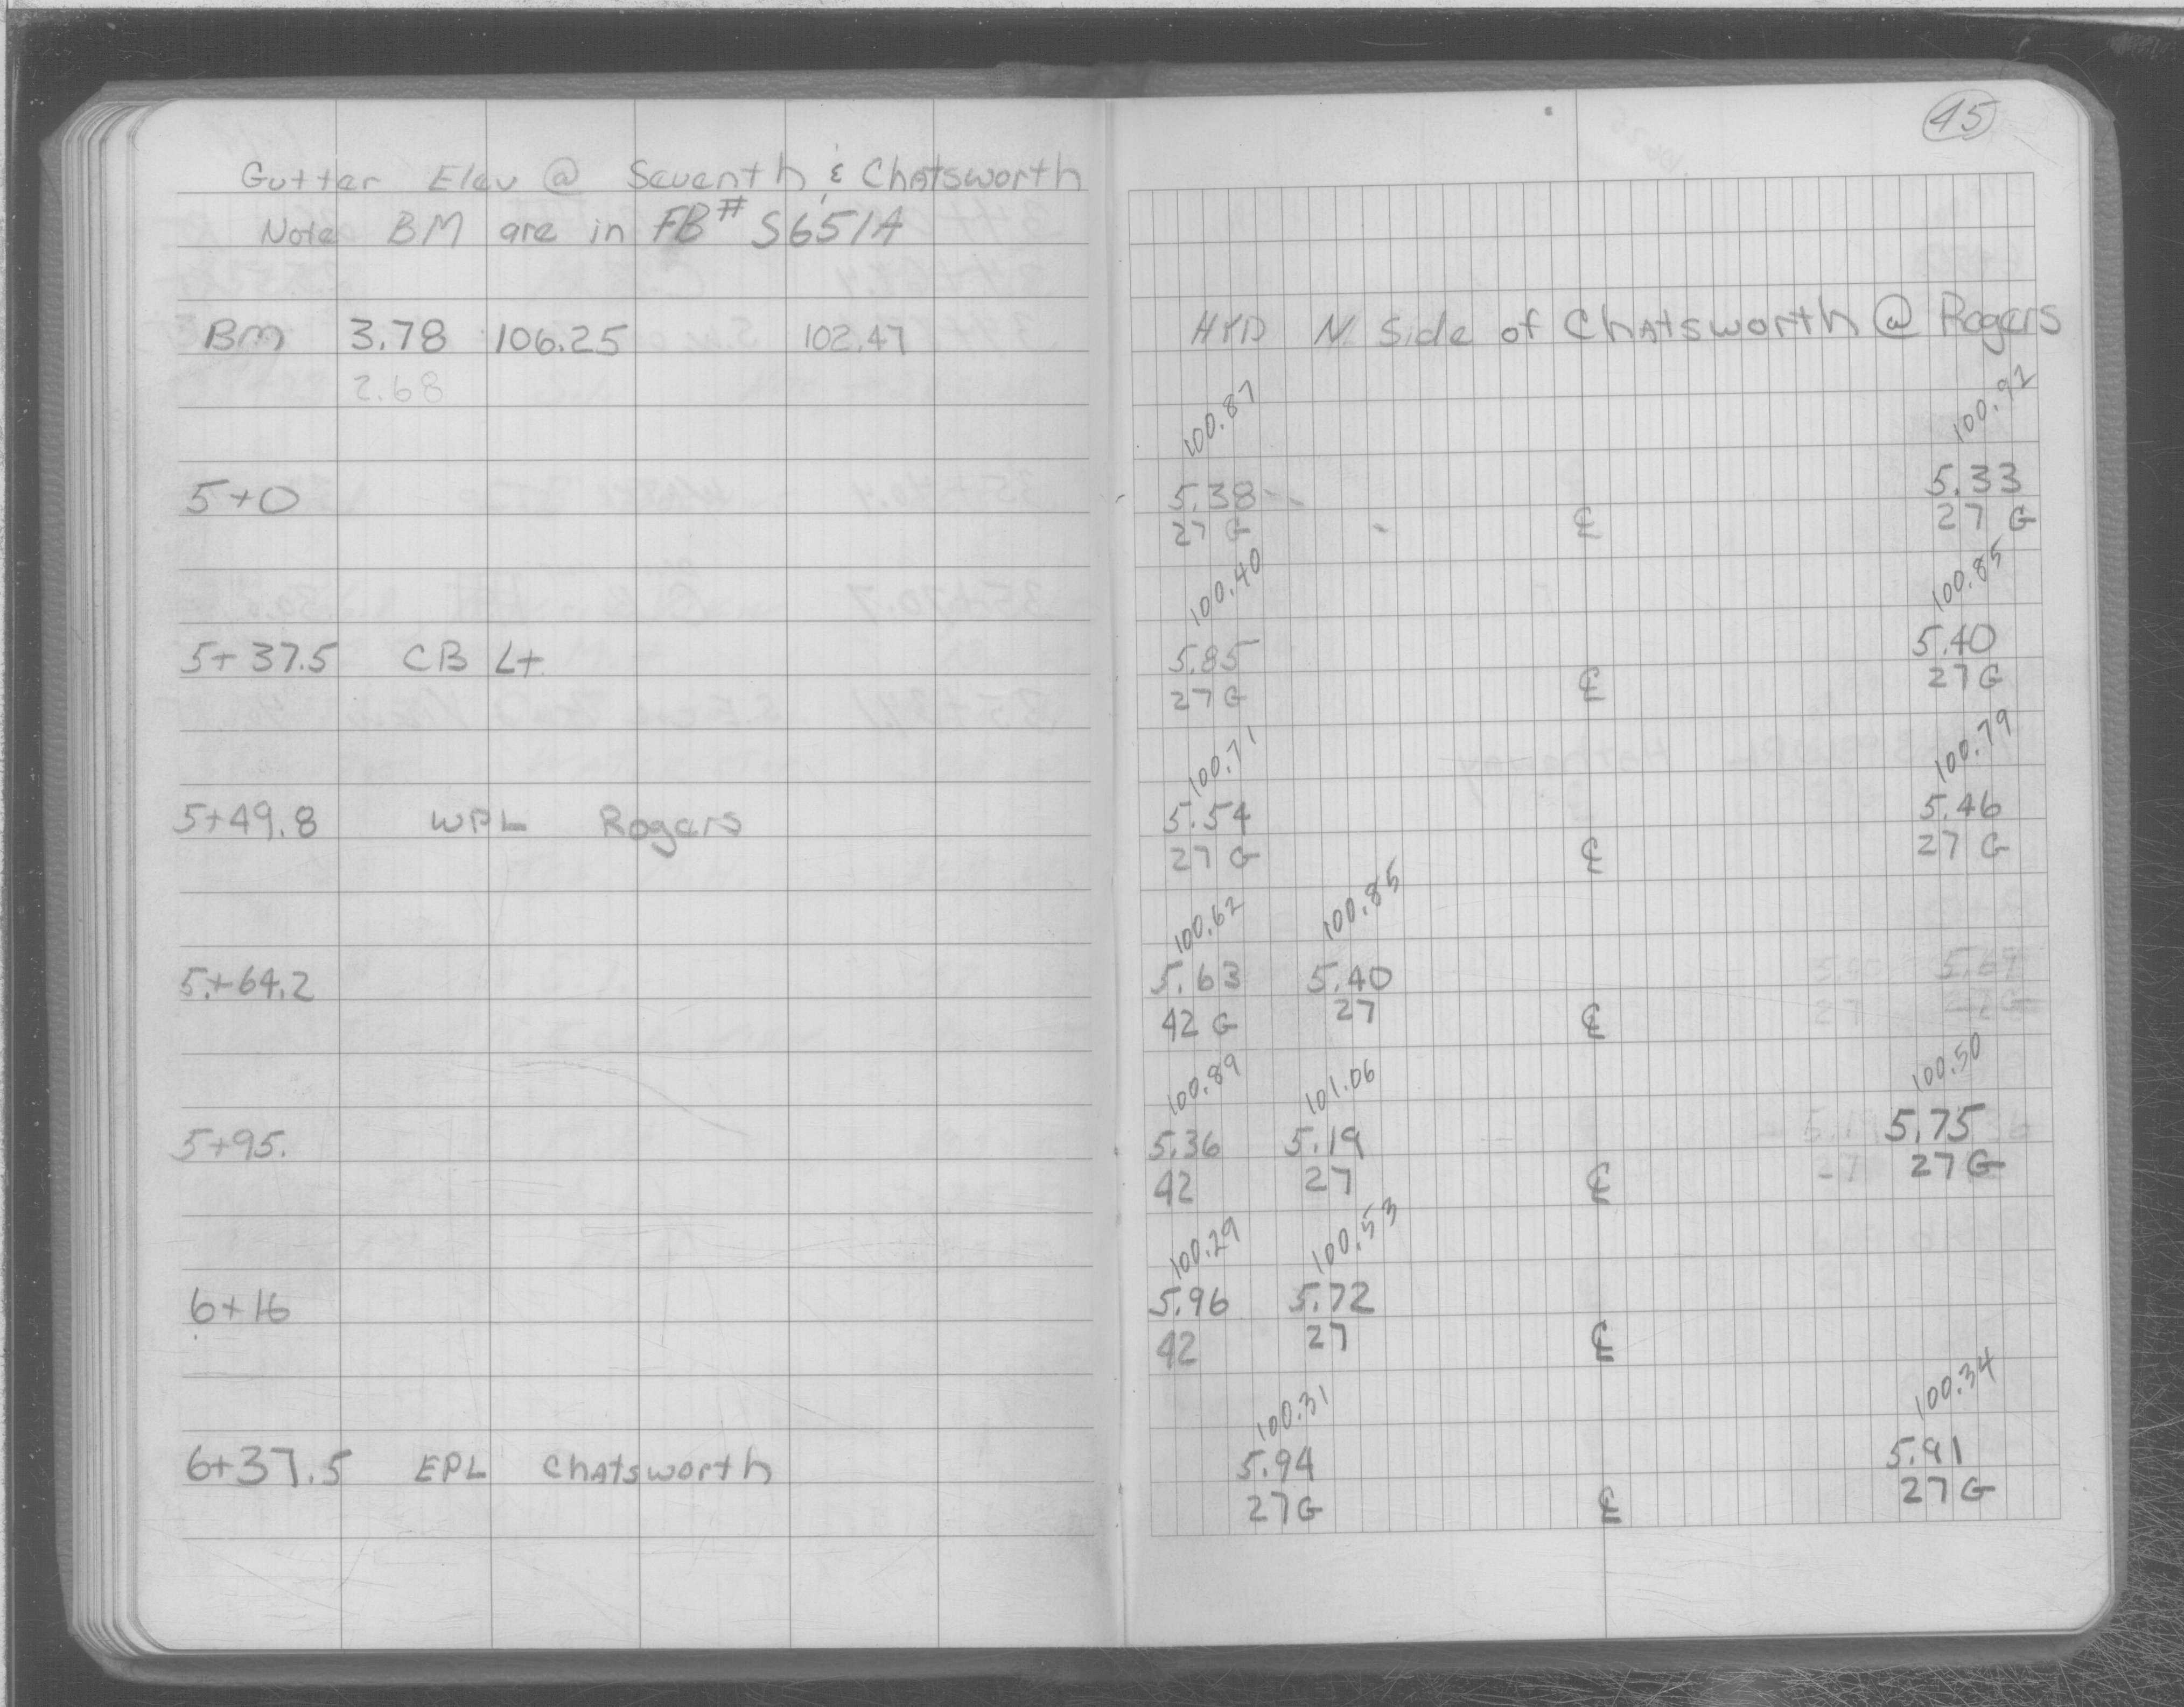 45
Gutter Elev @ Seventh & Chatsworth
Note BM are in FB# S651A
BM 3.78 106.25 102.47 HYD N. Side of Chatsworth @ Rogers
2.68
100.87 100.92
5+0 5.38 5.33
27 G ℄ 27 G
100.40 100.85
5+37.5 CB Lt. 5.85 5.40
27 G ℄ 27 G
100.71 100.79
5+49.8 WPL Rogers 5.54 5.46
27 G ℄ 27 G
100.62 100.85
5+64.2 5.63 5.40
42 G 27 ℄
100.89 101.06 100.50
5+95. 5.36 5.19 5.75
42 27 ℄ 27 G
100.29 100.53
6+16 5.96 5.72
42 27 ℄
100.31 100.34
6+37.5 EPL Chatsworth 5.94 5.91
27 G ℄ 27 G